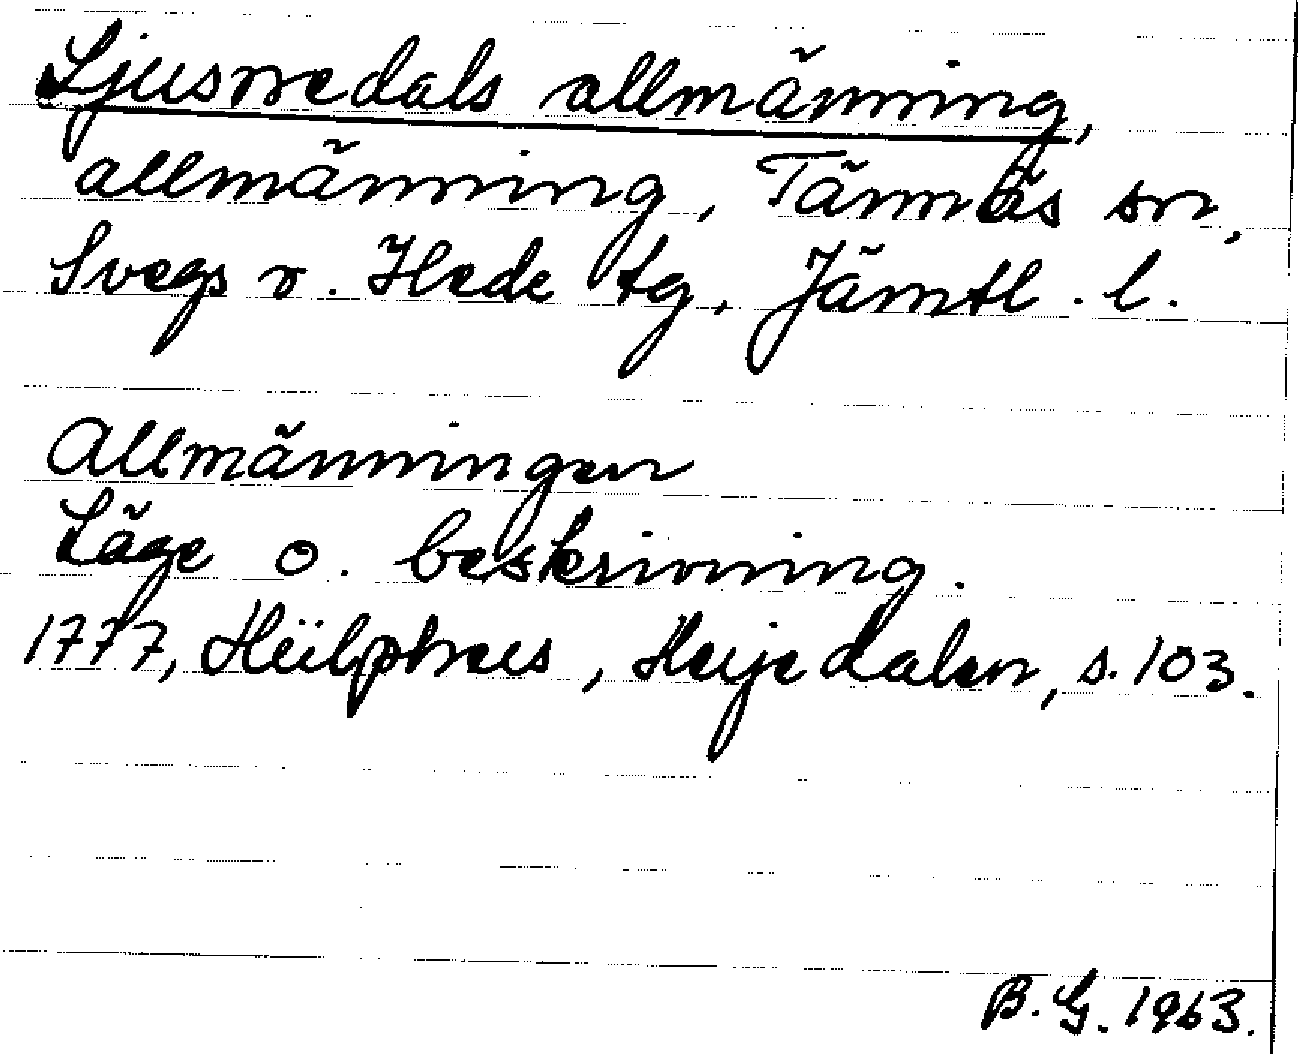 Ljusnedals allmänning,
allmänning, Tännäs sn,
Svegs o. Hede tg, Jämtl. l.
Allmänningen
Läge o. beskrivning.
1777, Hülphers, Herjedalen, s. 103.
B. G. 1963.